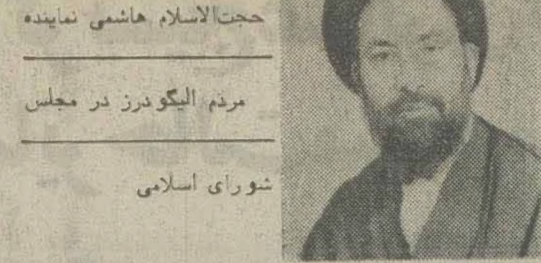 حجت‌الاسلام هاشمی نماینده
مردم الیگودرز در مجلس
شورای اسلامی